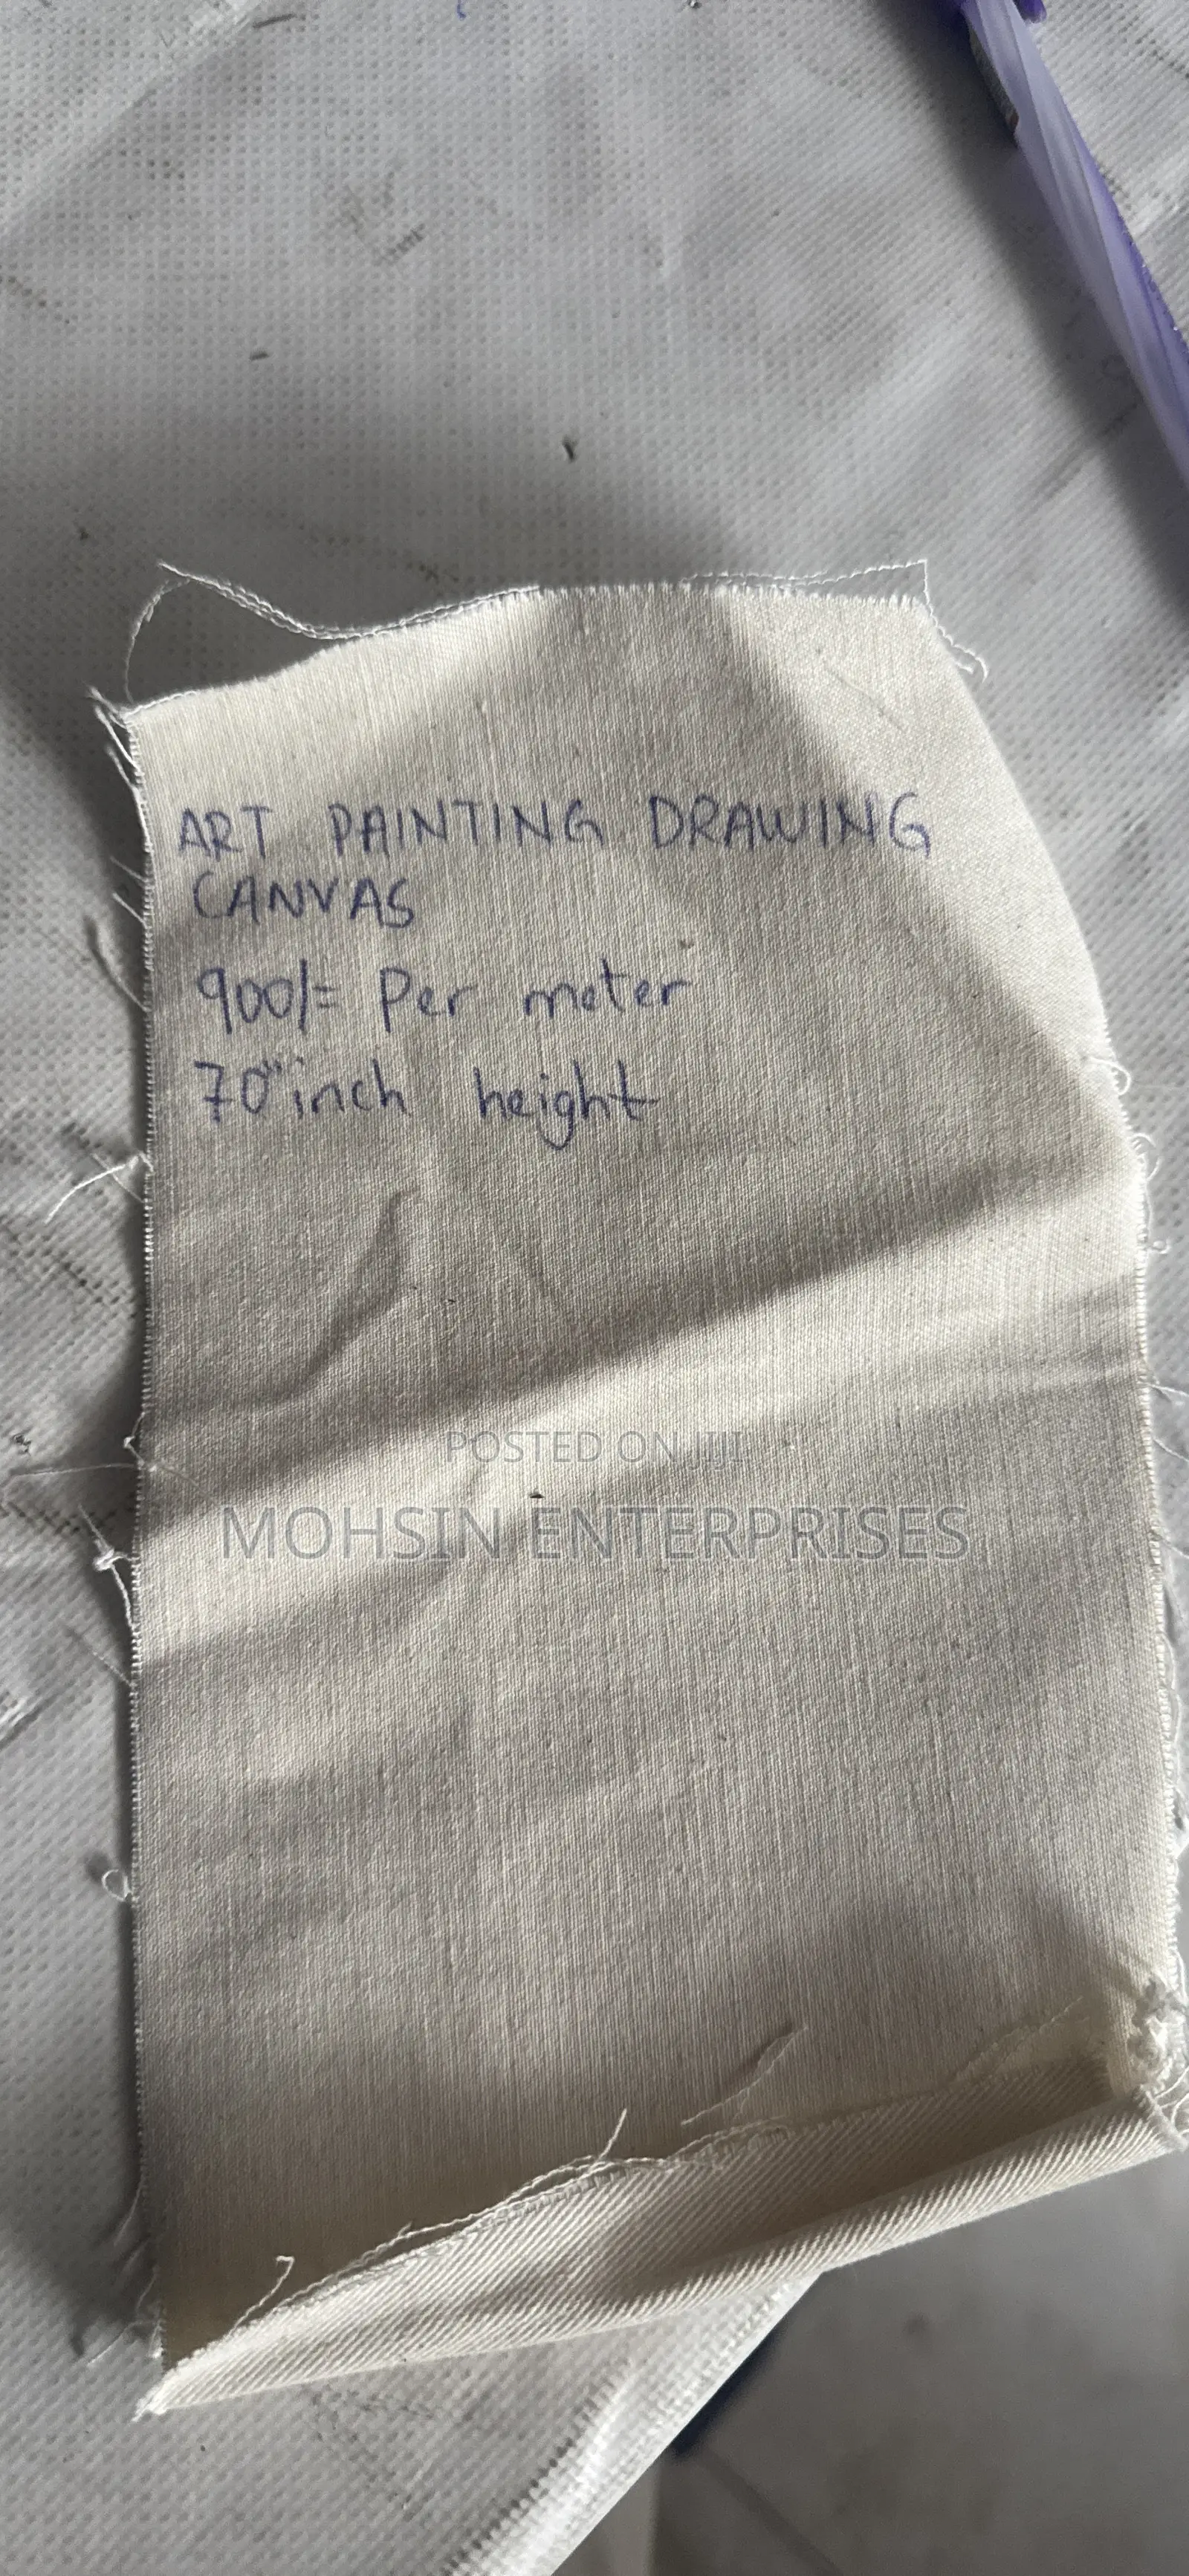 ART PAINTING DRAWING
CANVAS
900/= Per meter
70" inch height
POSTED ON JIJI
MOHSIN ENTERPRISES